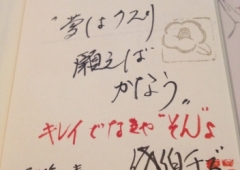 "夢はクスリ
願えば
かなう"
キレイでなきゃ"そん"よ